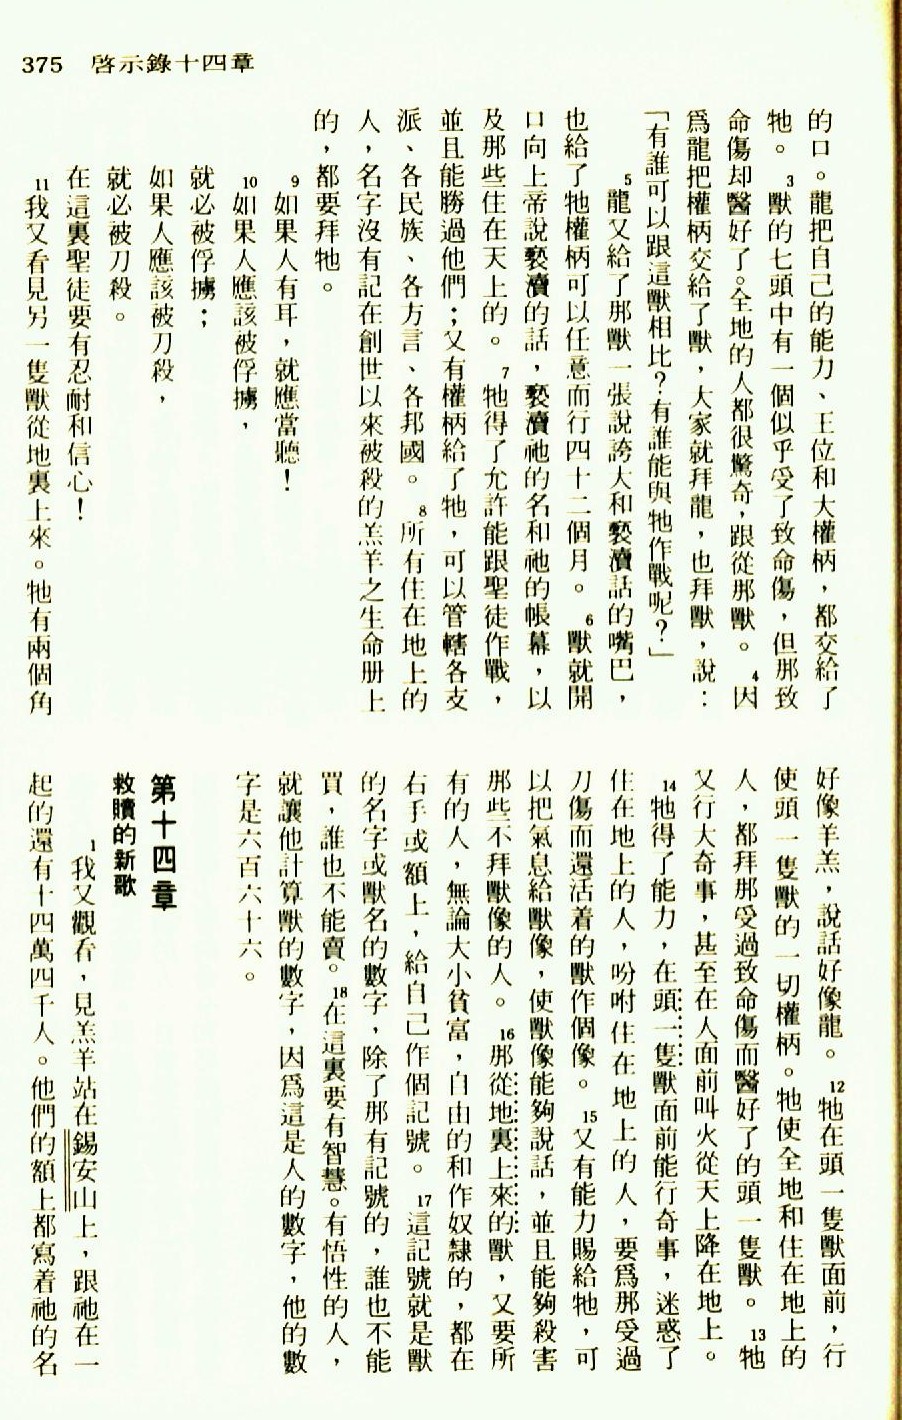 375 啓示錄十四章
的口。龍把自己的能力、王位和大權柄，都交給了
牠。3獸的七頭中有一個似乎受了致命傷，但那致
命傷却醫好了。全地的人都很驚奇，跟從那獸。4因
爲龍把權柄交給了獸，大家就拜龍，也拜獸，說：
「有誰可以跟這獸相比？有誰能與牠作戰呢？」
5龍又給了那獸一張說誇大和褻瀆話的嘴巴，
也給了牠權柄可以任意而行四十二個月。6獸就開
口向上帝說褻瀆的話，褻瀆祂的名和祂的帳幕，以
及那些住在天上的。7牠得了允許能跟聖徒作戰，
並且能勝過他們；又有權柄給了牠，可以管轄各支
派、各民族、各方言、各邦國。8所有住在地上的
人，名字沒有記在創世以來被殺的羔羊之生命册上
的，都要拜牠。
9如果人有耳，就應當聽！
10如果人應該被俘擄，
就必被俘擄；
如果人應該被刀殺，
就必被刀殺。
在這裏聖徒要有忍耐和信心！
11我又看見另一隻獸從地裏上來。牠有兩個角
好像羊羔，說話好像龍。12牠在頭一隻獸面前，行
使頭一隻獸的一切權柄。牠使全地和住在地上的
人，都拜那受過致命傷而醫好了的頭一隻獸。13牠
又行大奇事，甚至在人面前叫火從天上降在地上。
14牠得了能力，在頭一隻獸面前能行奇事，迷惑了
住在地上的人，吩咐住在地上的人，要爲那受過
刀傷而還活着的獸作個像。15又有能力賜給牠，可
以把氣息給獸像，使獸像能夠說話，並且能夠殺害
那些不拜獸像的人。16那從地裏上來的獸，又要所
有的人，無論大小貧富，自由的和作奴隸的，都在
右手或額上，給自己作個記號。17這記號就是獸
的名字或獸名的數字，除了那有記號的，誰也不能
買，誰也不能賣。18在這裏要有智慧。有悟性的人，
就讓他計算獸的數字，因爲這是人的數字，他的數
字是六百六十六。
第十四章
救贖的新歌
1我又觀看，見羔羊站在錫安山上，跟祂在一
起的還有十四萬四千人。他們的額上都寫着祂的名